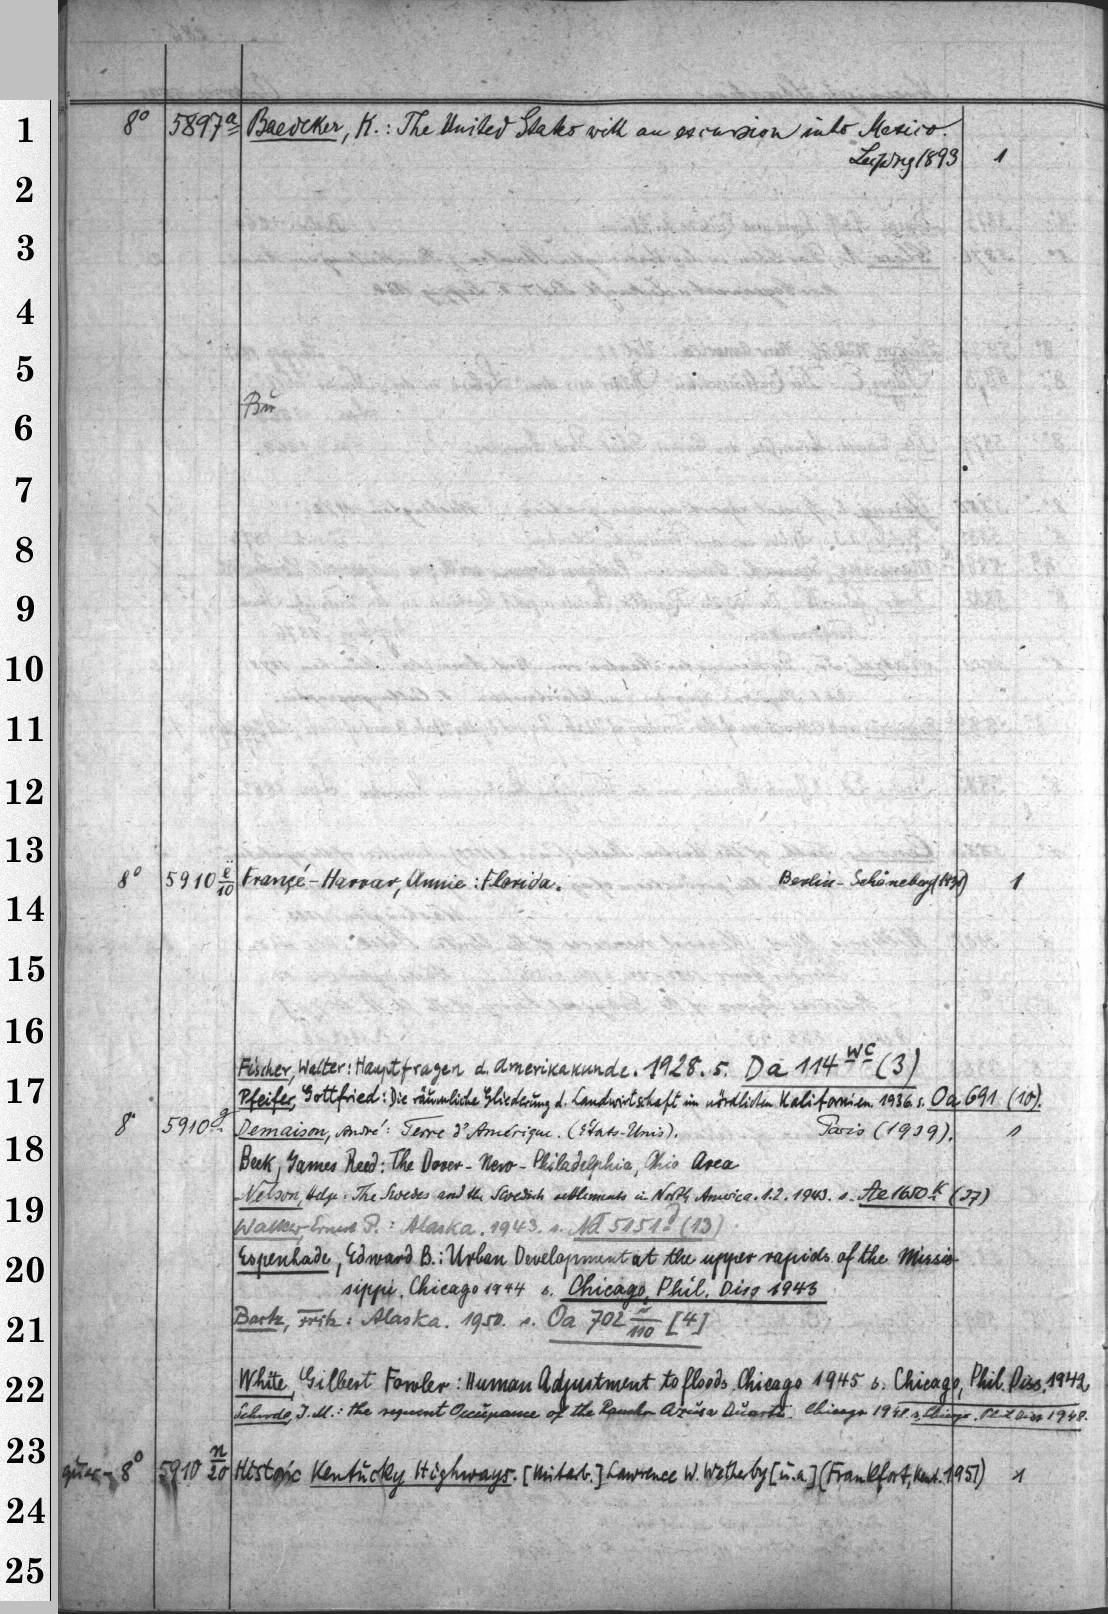 8° 5897a Baedeker, K.: The United States with an excursion into Mexico.
Leipzig 1893 1
Bü
8° 5910 ë/10 Françé-Harrar, Annie: Florida. Berlin-Schöneberg (1931) 1
Fischer, Walter: Hauptfragen d. Amerikakunde. 1928. s. Da 114 wc (3)
Pfeifer, Gottfried: Die räumliche Gliederung d. Landwirtschaft im nördlichen Kalifornien. 1936 s. Oa 691 (10).
8° 5910g Demaison, André: Terre d'Amérique. (États-Unis). Paris (1939). 1
Beck, James Reed: The Dover-New-Philadelphia, Ohio Area
Nelson, Helge: The Swedes and the Swedish settlements in North America. 1.2. 1943. s. Ae 1650 k (37)
Walker, Ernest P.: Alaska. 1943. s. Nd 5151 (13)
Espenhade, Edward B.: Urban Development at the upper rapids of the Missis-
sippi. Chicago 1944 s. Chicago, Phil. Diss 1943
Bartz, Fritz: Alaska. 1950. s. Oa 702 /110 [4]
White, Gilbert Fowler: Human Adjustment to floods. Chicago 1945 s. Chicago, Phil. Diss. 1942
J. M.: the sequent Occupance of the Rancho Azusa Duarte. Chicago 1948 s. Chicago, Phil Diss 1948.
quer-8° 5910 n/20 Historic Kentucky Highways. [Mitarb.] Lawrence W. Wetherby [u.a.] (Frankfort, Kent. 1951) 1
1
2
3
4
5
6
7
8
9
10
11
12
13
14
15
16
17
18
19
20
21
22
23
24
25